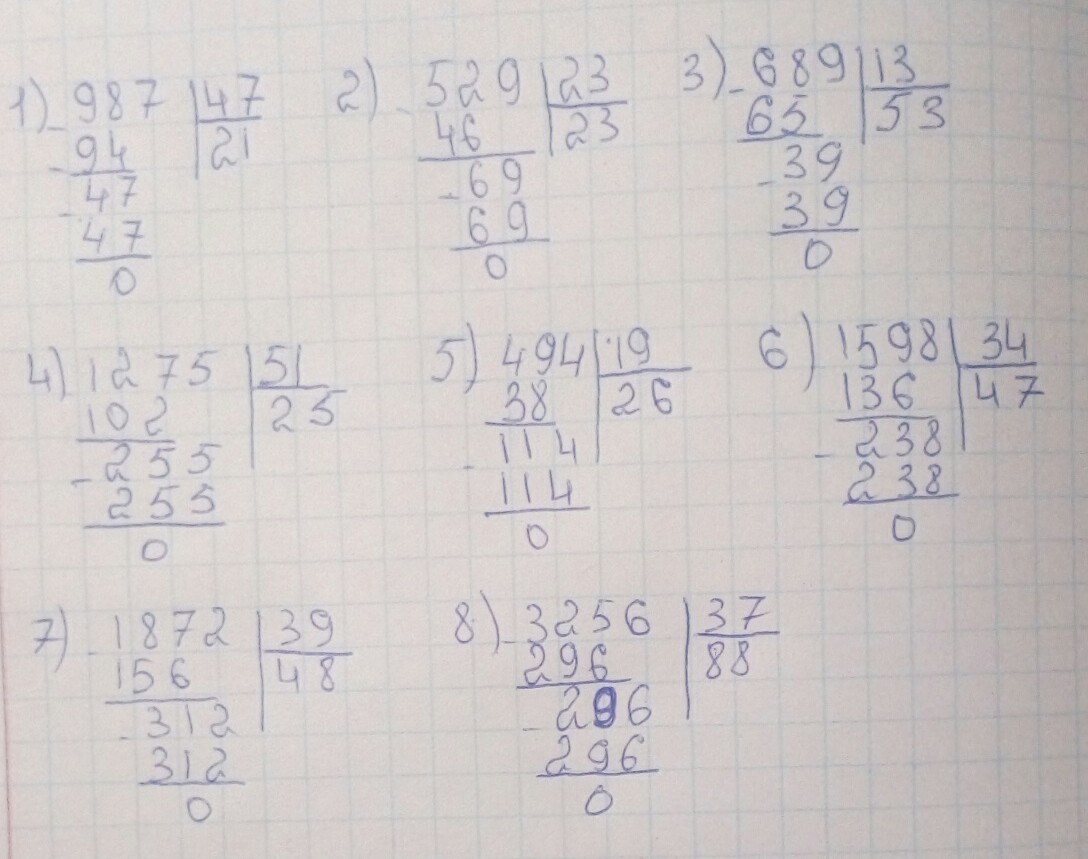 1) 987 47 2) 529 23 3) 689 13
94 21 46 23 65 53
47 69 39
47 69 39
0 0 0
4) 1275 51 5) 494 19 6) 1598 34
102 25 38 26 136 47
255 114 238
255 114 238
0 0 0
7) 1872 39 8) 3256 37
156 48 296 88
312 296
312 296
0 0